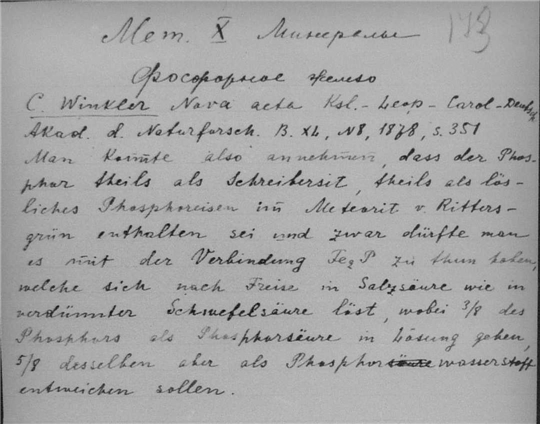 Мет. X Минералы 143
Фосфорное железо
C. Winkler Nova acta Ksl.-Leop-Carol-Deutsch
Akad. d. Naturforsch. B. XL, N8, 1878, s. 351
Man konnte also annehmen, dass der Phos-
phor theils als Schreibersit, theils als lös-
liches Phosphoreisen im Meteorit v. Ritters-
grün enthalten sei und zwar dürfte man
es mit der Verbindung Fe2P zu thun haben,
welche sich nach Freise in Salzsäure wie in
verdünnter Schwefelsäure löst, wobei 3/8 des
Phosphors als Phosphorsäure in Lösung gehen,
5/8 desselben aber als Phosphorsäure wasserstoff
entweichen sollen.